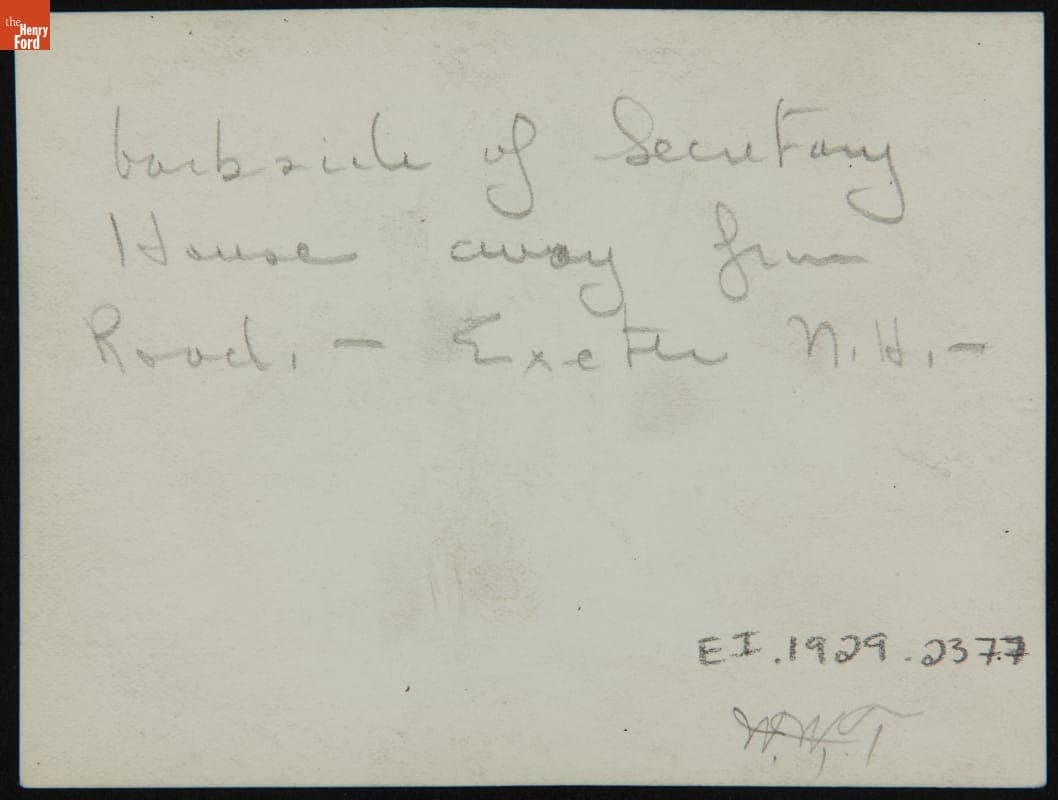 the
Henry
Ford
backside of Secretary
House away from
Road. - Exeter N.H. -
EI.1929.2377
W.W.T